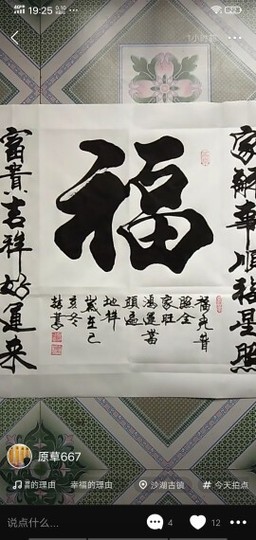 19:25
家和事顺福星照
福
富贵吉祥好运来
福光普
照全
家旺
鸿运当
頭遍
地祥
岁在己
亥冬
原草667
的理由
幸福的理由
沙湖古镇
# 今天拍点
说点什么...
4
12